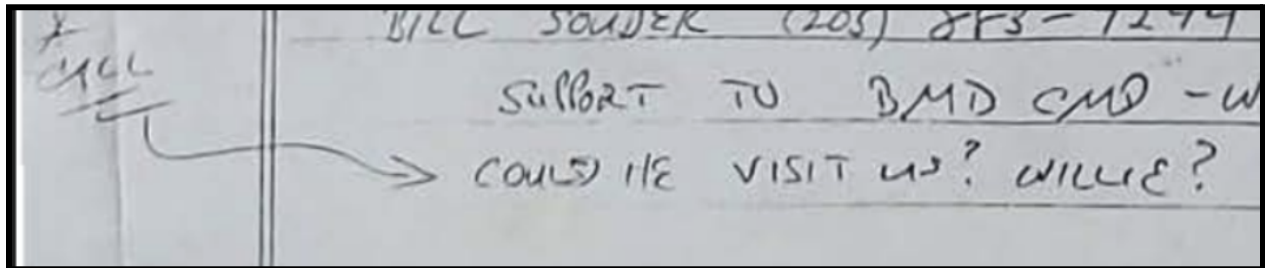 BILL SOUDER (205) 883-1294
CALL
SUPPORT TO BMD CMD - W
COULD HE VISIT US? WILLIE?